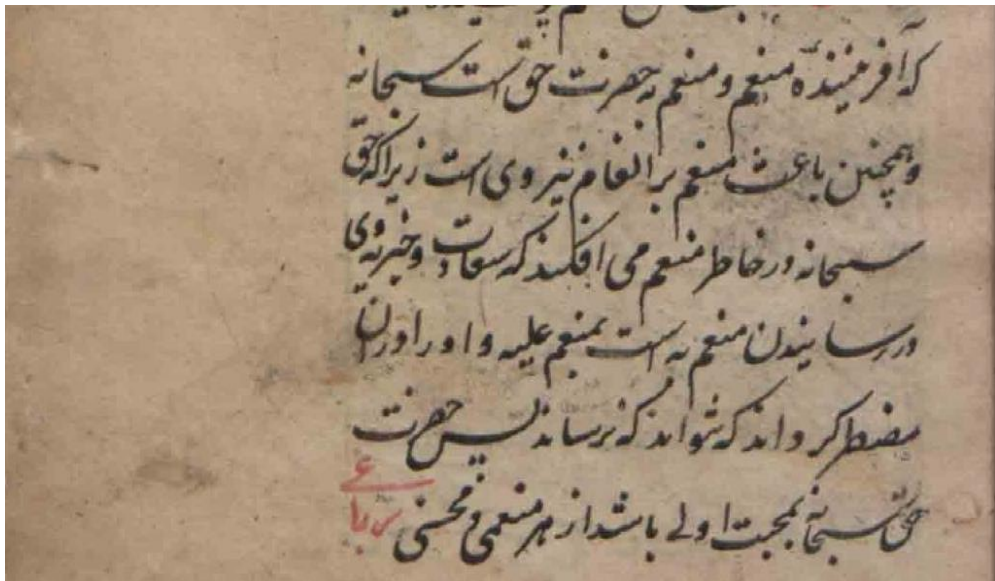 که آفرینندهٔ منعم و منعم به حضرت حق است سبحانه
و همچنین باعث منعم بر انعام نیز وی است زیرا که حق
سبحانه در خاطر منعم می افکند که سعادت و خیریه وی
در رسانیدن منعم به است بمنعم علیه و او را در آن
مضطر کرداند که نتواند که نرساند پس حضرت
حق سبحانه بمحبت اولی باشد از هر منعمی و محسنی
رباعی